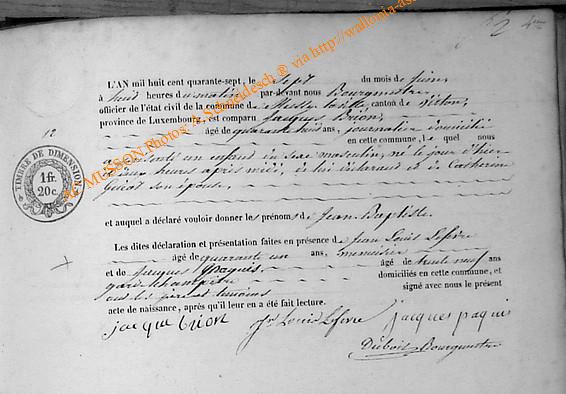 2 4me
L'AN mil huit cent quarante-sept, le sept du mois de juin,
à huit heures du matin par-devant nous Bourgmestre
officier de l'état civil de la commune de Mussy la ville, canton de Virton,
province de Luxembourg, est comparu Jacques Brion,
âgé de quarante huit ans, journalier domicilié
en cette commune, le quel nous
12
a présenté un enfant du sexe masculin, né le jour d'hier
à deux heures après midi, de lui déclarant et de Catherine
son épouse,
TIMBRE DE DIMENSION
1 fr.
20 c.
et auquel a déclaré vouloir donner les prénoms de Jean Baptiste.
Les dites déclaration et présentation faites en présence de Jean Louis Lefèvre
âgé de quarante un ans, menuisier
et de Jacques Paquis, âgé de trente neuf ans
garde champêtre domiciliés en cette commune, et
ont les père et témoins signé avec nous le présent
acte de naissance, après qu'il leur en a été fait lecture.
jacque brion Jn Louis Lefevre jacques paquis
Dubois Bourgmestre
MUSSON Photos: A. Schneidesch ® via http://wallonia-as